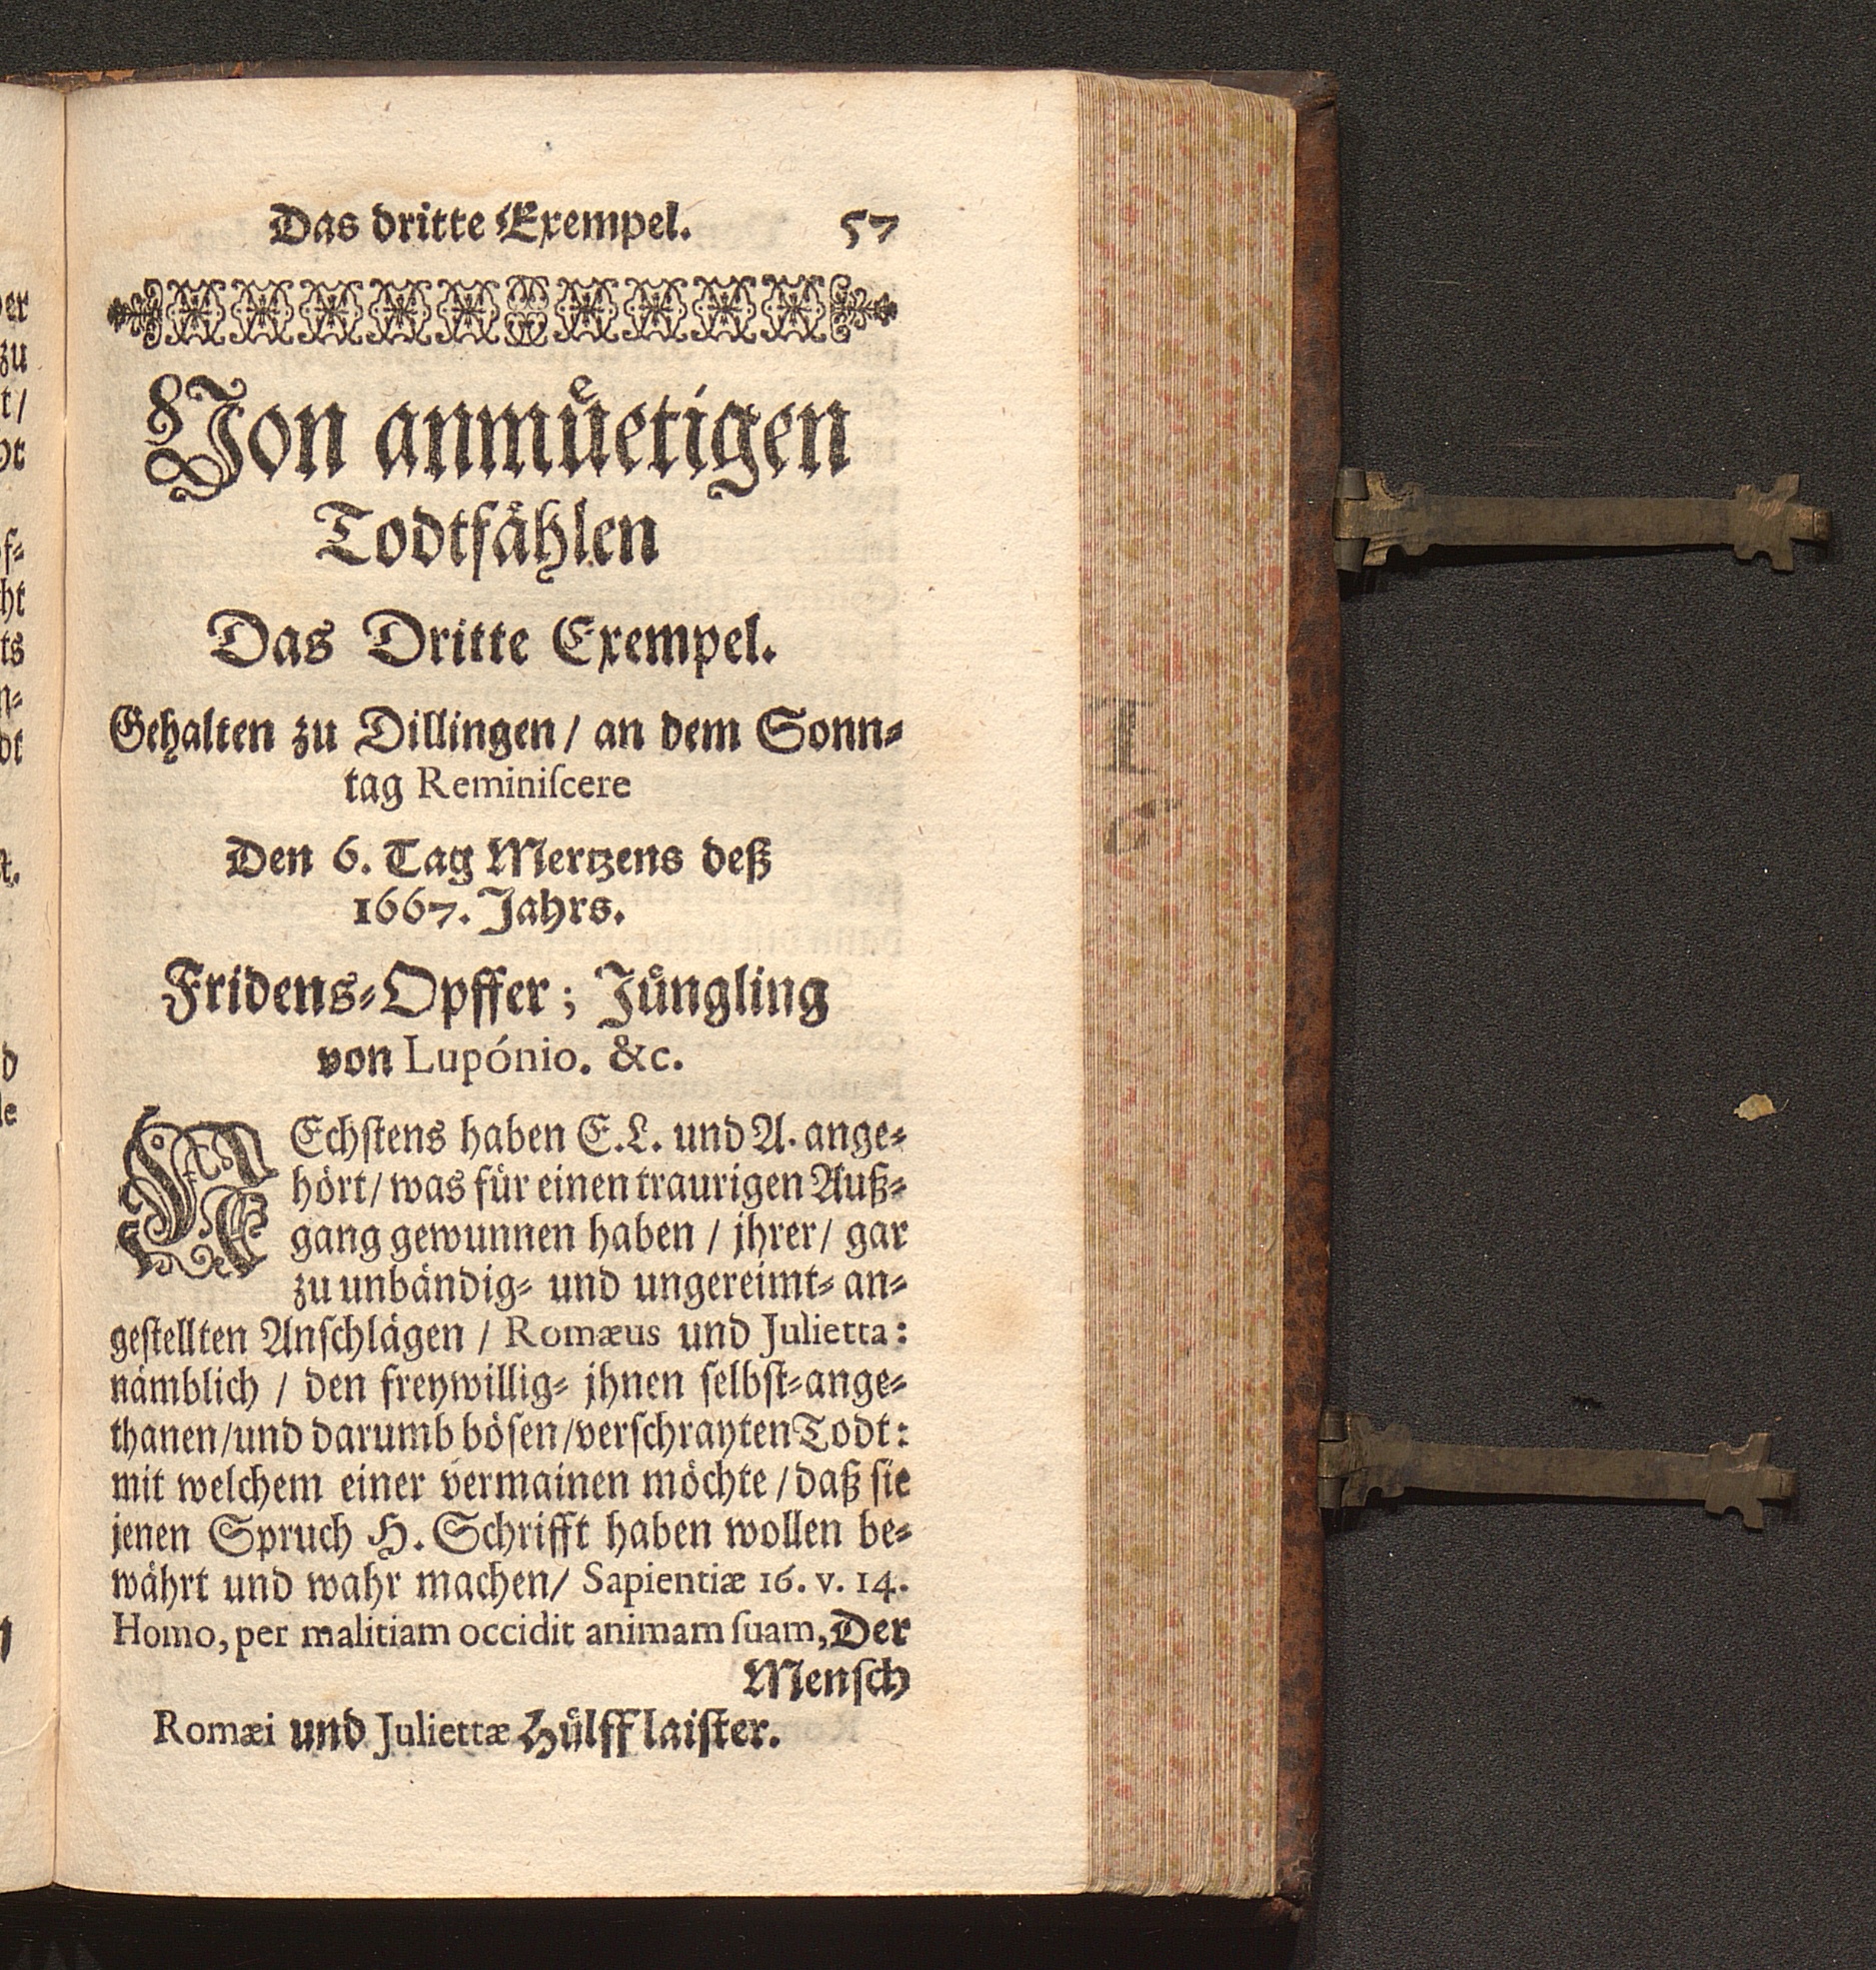 Das dritte Exempel. 57
Von anmůetigen
Todtfåhlen
Das Dritte Exempel.
Gehalten zu Dillingen / an dem Sonn⸗
tag Reminiſcere
Den 6. Tag Mertzens deß
1667. Jahrs.
Fridens⸗Opffer; Jůngling
von Lupónio. &c.
NEchſtens haben E.L. und A. ange⸗
hört / was für einen traurigen Auß⸗
gang gewunnen haben / jhrer / gar
zu unbändig⸗ und ungereimt⸗ an⸗
geſtellten Anſchlägen / Romæus und Julietta:
nämblich / den freywillig⸗ jhnen ſelbſt⸗ange⸗
thanen / und darumb böſen / verſchrayten Todt:
mit welchem einer vermainen möchte / daß ſie
jenen Spruch H. Schrifft haben wollen be⸗
währt und wahr machen / Sapientiæ 16. v. 14.
Homo, per malitiam occidit animam ſuam, Der
Menſch
Romæi und Juliettæ Hůlfflaiſter.